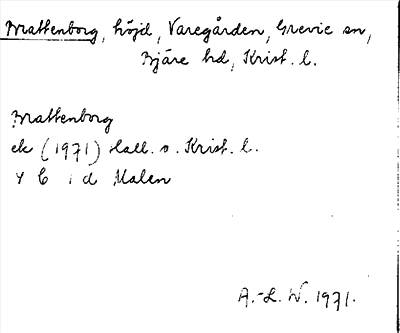 Brattenborg, höjd, Varegården, Grevie sn,
Bjäre hd, Krist. l.
Brattenborg
ek (1971) Hall. o. Krist. l.
4 C i d Malen
A.-L. W. 1971.